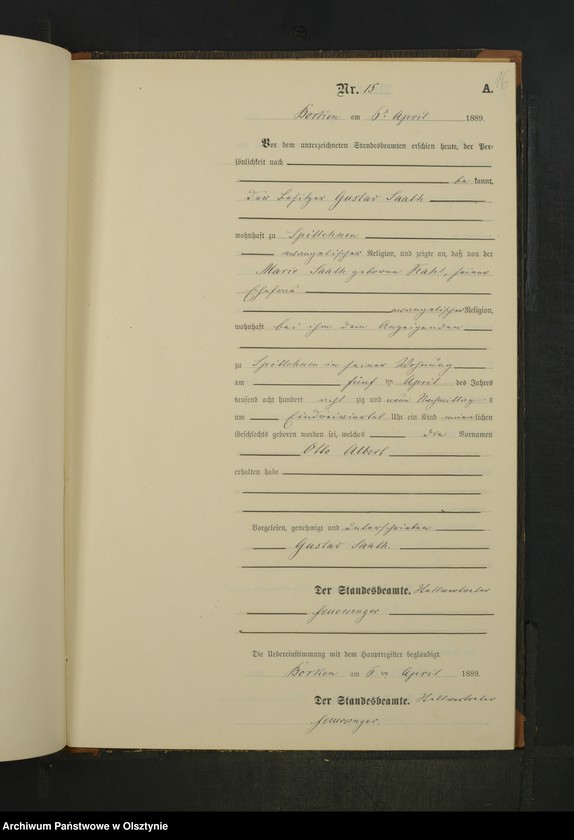 16
Nr. 15 A.
Borken am 6t April 1889.
Vor dem unterzeichneten Standesbeamten erschien heute, der Per-
sönlichkeit nach
be kannt,
der Besitzer Gustav Saath
wohnhaft zu
evangelischer Religion, und zeigte an, daß von der
Marie Saath geborene Kahl, seiner
Ehefrau
evangelischer Religion,
wohnhaft bei ihm dem Anzeigenden
zu in seiner Wohnung
am fünf ten April des Jahres
tausend acht hundert acht zig und neun Nachmittag s
am Uhr ein Kind männ lichen
Geschlechts geboren worden sei, welches die Vornamen
Otto Albert
erhalten habe
Vorgelesen, genehmigt und unterschrieben
Gustav Saath.
Der Standesbeamte.
Die Uebereinstimmung mit dem Hauptregister beglaubigt.
Borken am 6 ten April 1889.
Der Standesbeamte.
Archiwum Państwowe w Olsztynie